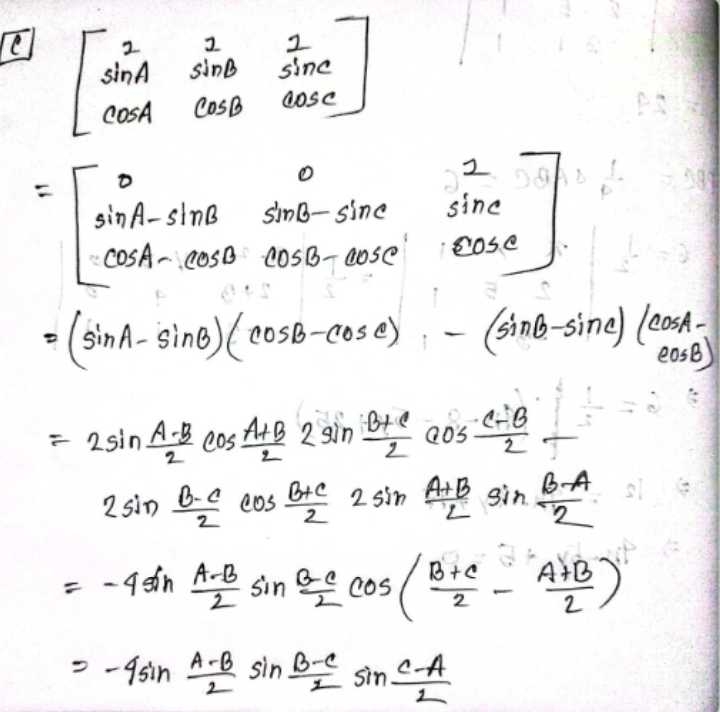 c
1 1 1
sinA sinB sinc
cosA cosB cosc
= 0 0 1
sinA-sinB sinB-sinc sinc
cosA-cosB cosB-cosc cosc
= (sinA-sinB)(cosB-cosc) - (sinB-sinc)(cosA-cosB)
= 2sin A-B/2 cos A+B/2 2 sin B+C/2 cos C-B/2 -
2sin B-C/2 cos B+C/2 2 sin A+B/2 sin B-A/2
= -4sin A-B/2 sin B-C/2 cos (B+C/2 - A+B/2)
= -4sin A-B/2 sin B-C/2 sin C-A/2